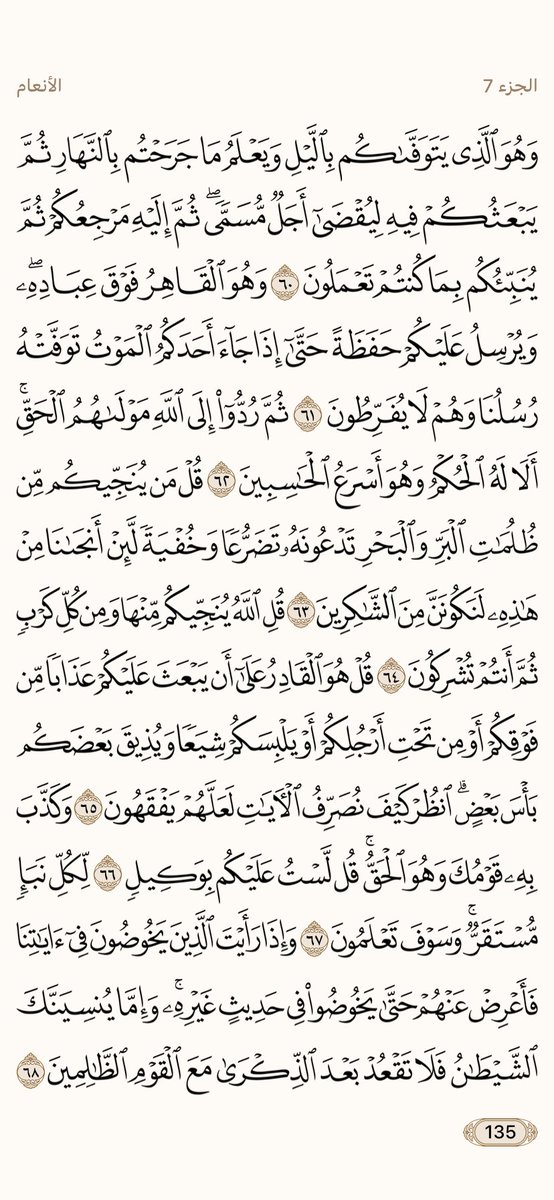 الجزء 7
الأنعام
وَهُوَ ٱلَّذِى يَتَوَفَّىٰكُم بِٱلَّيْلِ وَيَعْلَمُ مَا جَرَحْتُم بِٱلنَّهَارِ ثُمَّ
يَبْعَثُكُمْ فِيهِ لِيُقْضَىٰٓ أَجَلٌ مُّسَمًّى ۖ ثُمَّ إِلَيْهِ مَرْجِعُكُمْ ثُمَّ
يُنَبِّئُكُم بِمَا كُنتُمْ تَعْمَلُونَ ٦٠ وَهُوَ ٱلْقَاهِرُ فَوْقَ عِبَادِهِۦ ۖ
وَيُرْسِلُ عَلَيْكُمْ حَفَظَةً حَتَّىٰٓ إِذَا جَآءَ أَحَدَكُمُ ٱلْمَوْتُ تَوَفَّتْهُ
رُسُلُنَا وَهُمْ لَا يُفَرِّطُونَ ٦١ ثُمَّ رُدُّوٓا۟ إِلَى ٱللَّهِ مَوْلَىٰهُمُ ٱلْحَقِّ ۚ
أَلَا لَهُ ٱلْحُكْمُ وَهُوَ أَسْرَعُ ٱلْحَـٰسِبِينَ ٦٢ قُلْ مَن يُنَجِّيكُم مِّن
ظُلُمَـٰتِ ٱلْبَرِّ وَٱلْبَحْرِ تَدْعُونَهُۥ تَضَرُّعًا وَخُفْيَةً لَّئِنْ أَنجَىٰنَا مِنْ
هَـٰذِهِۦ لَنَكُونَنَّ مِنَ ٱلشَّـٰكِرِينَ ٦٣ قُلِ ٱللَّهُ يُنَجِّيكُم مِّنْهَا وَمِن كُلِّ كَرْبٍ
ثُمَّ أَنتُمْ تُشْرِكُونَ ٦٤ قُلْ هُوَ ٱلْقَادِرُ عَلَىٰٓ أَن يَبْعَثَ عَلَيْكُمْ عَذَابًا مِّن
فَوْقِكُمْ أَوْ مِن تَحْتِ أَرْجُلِكُمْ أَوْ يَلْبِسَكُمْ شِيَعًا وَيُذِيقَ بَعْضَكُم
بَأْسَ بَعْضٍ ۗ ٱنظُرْ كَيْفَ نُصَرِّفُ ٱلْـَٔايَـٰتِ لَعَلَّهُمْ يَفْقَهُونَ ٦٥ وَكَذَّبَ
بِهِۦ قَوْمُكَ وَهُوَ ٱلْحَقُّ ۚ قُل لَّسْتُ عَلَيْكُم بِوَكِيلٍ ٦٦ لِّكُلِّ نَبَإٍ
مُّسْتَقَرٌّ ۚ وَسَوْفَ تَعْلَمُونَ ٦٧ وَإِذَا رَأَيْتَ ٱلَّذِينَ يَخُوضُونَ فِىٓ ءَايَـٰتِنَا
فَأَعْرِضْ عَنْهُمْ حَتَّىٰ يَخُوضُوا۟ فِى حَدِيثٍ غَيْرِهِۦ ۚ وَإِمَّا يُنسِيَنَّكَ
ٱلشَّيْطَـٰنُ فَلَا تَقْعُدْ بَعْدَ ٱلذِّكْرَىٰ مَعَ ٱلْقَوْمِ ٱلظَّـٰلِمِينَ ٦٨
135